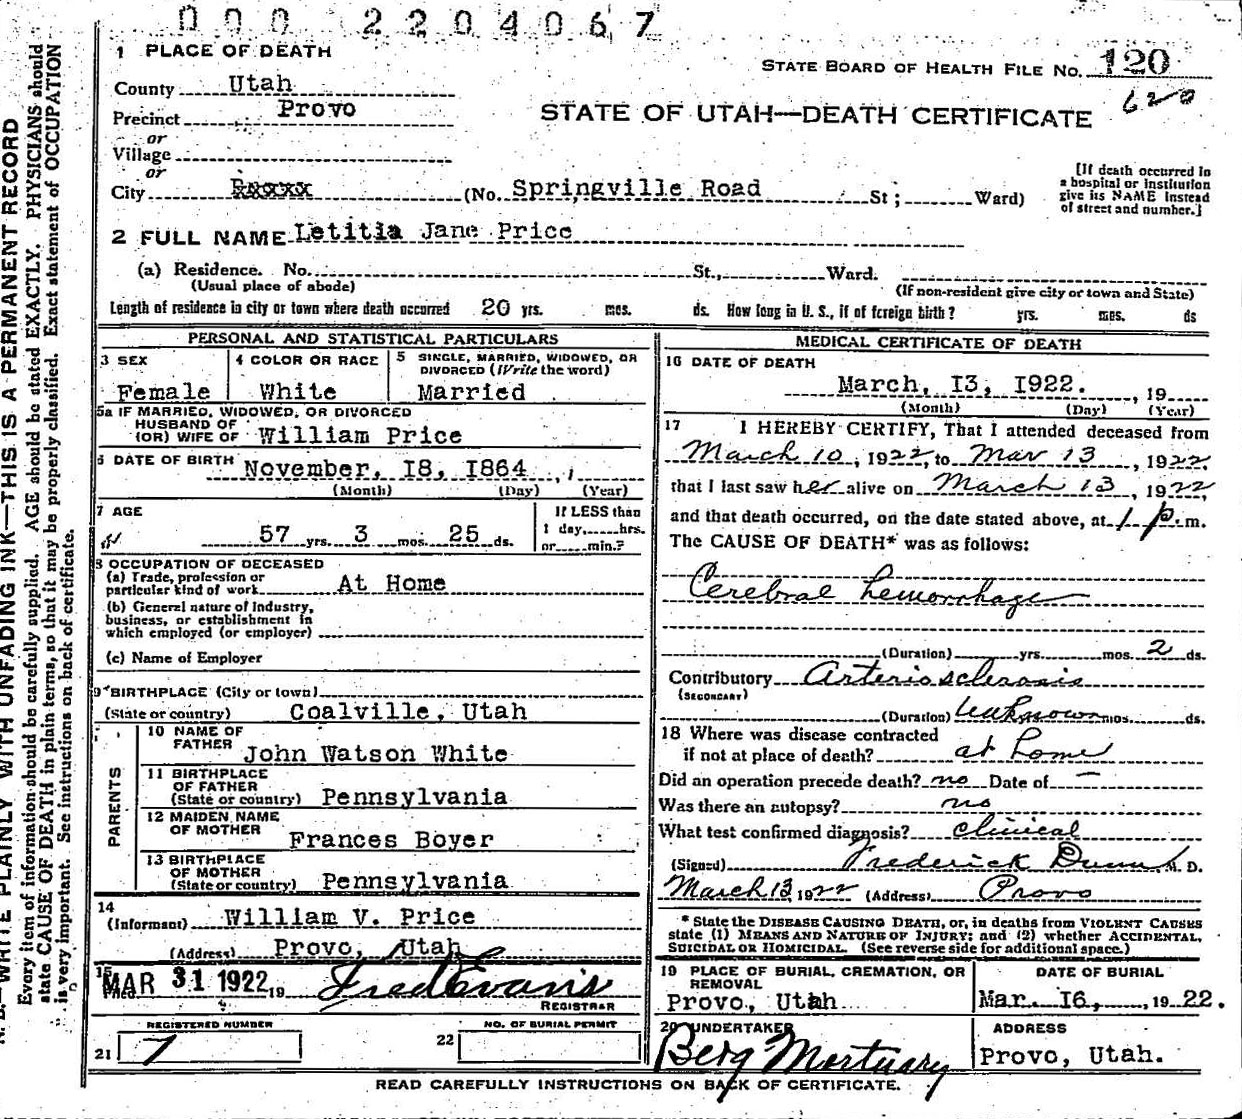 0002204067
1 PLACE OF DEATH
STATE BOARD OF HEALTH FILE NO. 120
620
County Utah
Precinct Provo
or
Village
or
City Exxxx (No. Springville Road St; Ward)
STATE OF UTAH—DEATH CERTIFICATE
[If death occurred in
a hospital or institution
give its NAME instead
of street and number.]
2 FULL NAME Letitia Jane Price
(a) Residence. No. St., Ward.
(Usual place of abode)
(If non-resident give city or town and State)
Length of residence in city or town where death occurred 20 yrs. mos. ds. How long in U. S., if of foreign birth? yrs. mos. ds
PERSONAL AND STATISTICAL PARTICULARS
3 SEX
Female
4 COLOR OR RACE
White
5 SINGLE, MARRIED, WIDOWED, OR
DIVORCED (Write the word)
Married
5a IF MARRIED, WIDOWED, OR DIVORCED
HUSBAND OF
(OR) WIFE OF William Price
6 DATE OF BIRTH November, 18, 1864
(Month) (Day) (Year)
7 AGE
57 yrs. 3 mos. 25 ds.
If LESS than
1 day, hrs.
or min.?
8 OCCUPATION OF DECEASED
(a) Trade, profession or
particular kind of work At Home
(b) General nature of Industry,
business, or establishment in
which employed (or employer)
(c) Name of Employer
9 BIRTHPLACE (City or town)
(State or country) Coalville, Utah
PARENTS
10 NAME OF
FATHER John Watson White
11 BIRTHPLACE
OF FATHER
(State or country) Pennsylvania
12 MAIDEN NAME
OF MOTHER Frances Boyer
13 BIRTHPLACE
OF MOTHER
(State or country) Pennsylvania
14
(Informant) William V. Price
(Address) Provo, Utah
15
Filed MAR 31 1922, 19 Fred Evans
REGISTRAR
REGISTERED NUMBER
21 7
NO. OF BURIAL PERMIT
22
MEDICAL CERTIFICATE OF DEATH
16 DATE OF DEATH
March, 13, 1922. , 19
(Month) (Day) (Year)
17 I HEREBY CERTIFY, That I attended deceased from
March 10, 1922, to Mar 13, 1922,
that I last saw her alive on March 13, 1922,
and that death occurred, on the date stated above, at 1 p. m.
The CAUSE OF DEATH* was as follows:
Cerebral hemorrhage
(Duration) yrs. mos. 2 ds.
Contributory Arteriosclerosis
(SECONDARY)
(Duration) Unknown mos. ds.
18 Where was disease contracted
if not at place of death? at home
Did an operation precede death? no Date of —
Was there an autopsy? no
What test confirmed diagnosis? clinical
(Signed) Frederick Dunn M. D.
March 13, 1922 (Address) Provo
* State the DISEASE CAUSING DEATH, or, in deaths from VIOLENT CAUSES
state (1) MEANS AND NATURE OF INJURY; and (2) whether ACCIDENTAL,
SUICIDAL OR HOMICIDAL. (See reverse side for additional space.)
19 PLACE OF BURIAL, CREMATION, OR
REMOVAL
Provo, Utah
DATE OF BURIAL
Mar. 16, , 19 22.
20 UNDERTAKER
Berg Mortuary
ADDRESS
Provo, Utah.
READ CAREFULLY INSTRUCTIONS ON BACK OF CERTIFICATE.
N. B.—WRITE PLAINLY WITH UNFADING INK—THIS IS A PERMANENT RECORD
Every item of information should be carefully supplied. AGE should be stated EXACTLY. PHYSICIANS should
state CAUSE OF DEATH in plain terms, so that it may be properly classified. Exact statement of OCCUPATION
is very important. See instructions on back of certificate.